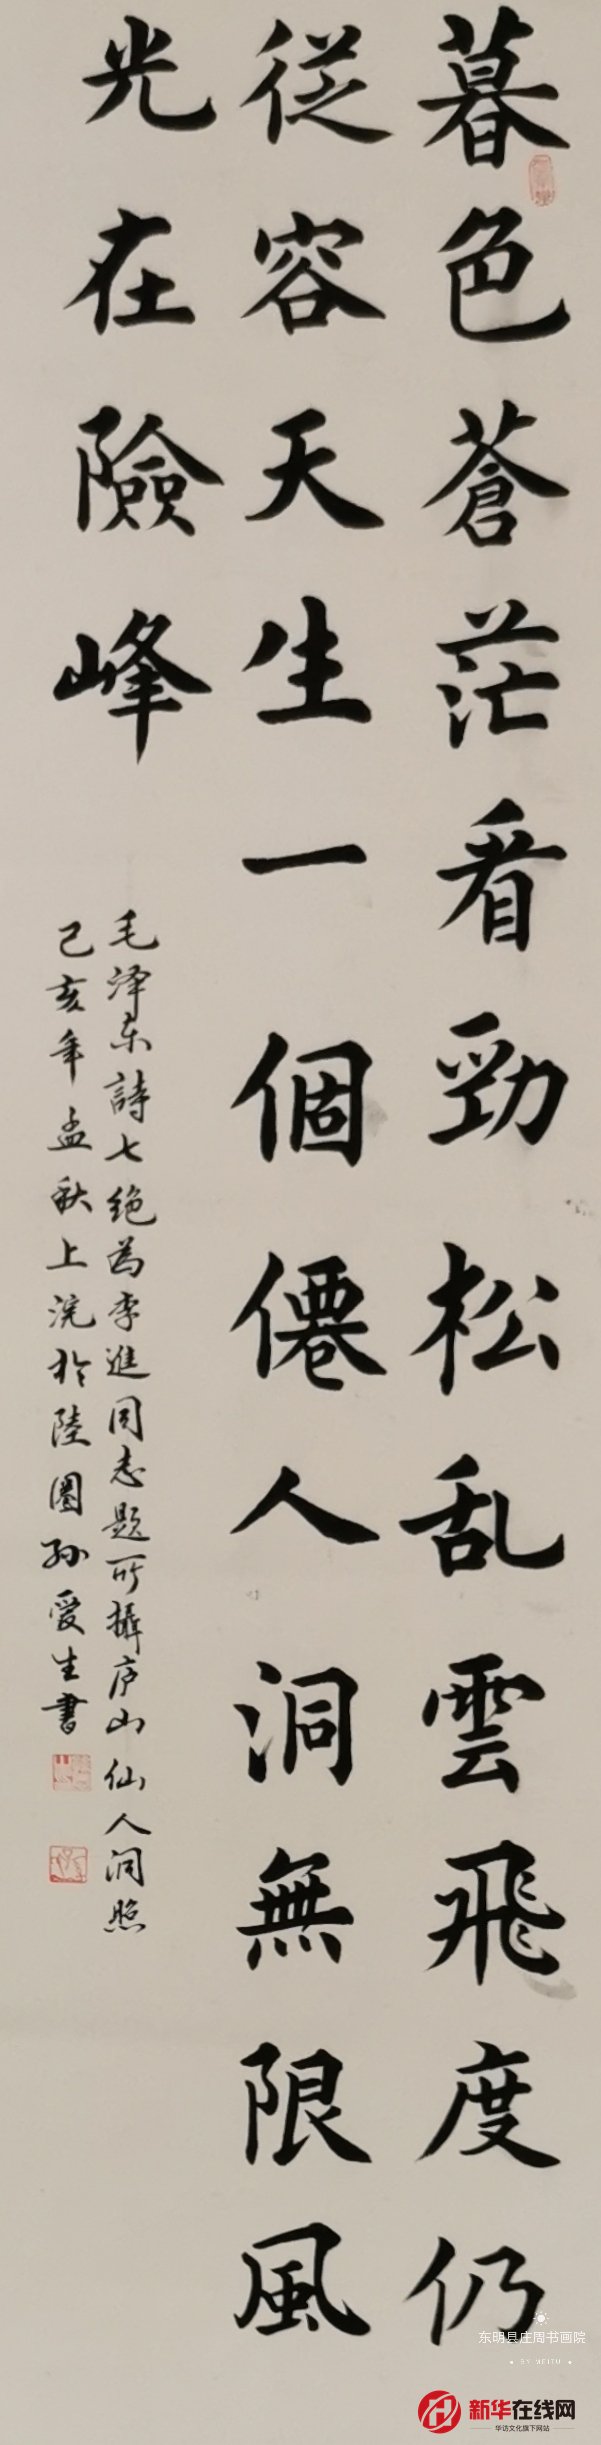 暮色蒼茫看勁松乱雲飛度仍
従容天生一個僊人洞無限風
光在險峰
毛泽东詩七绝為李進同志題所攝庐山仙人洞照
己亥年孟秋上浣於陸圈孙爱生書
东明县庄周书画院
BY MEITU
新华在线网
华访文化旗下网站